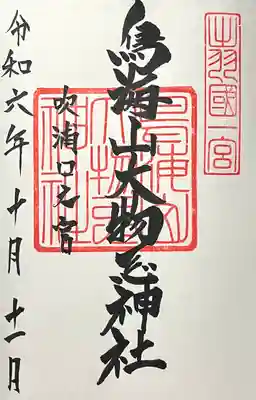 出羽國一宮
鳥海山大物忌神社
吹浦口之宮
鳥海山大物忌神社
令和六年十月十一日